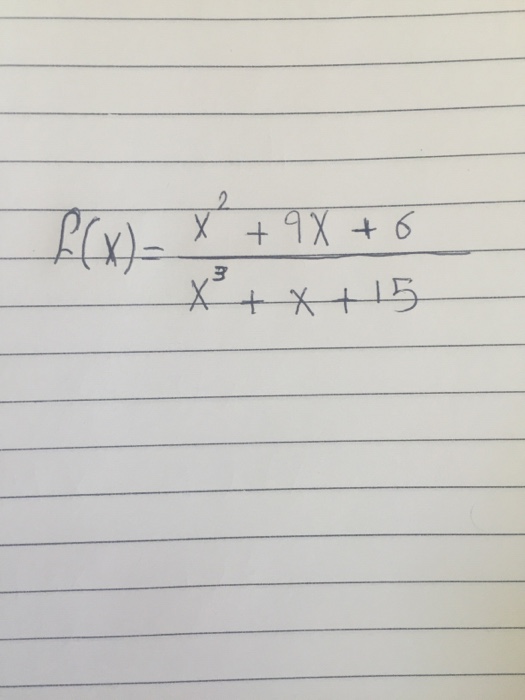 f(x) = x² + 9x + 6
x³ + x + 15